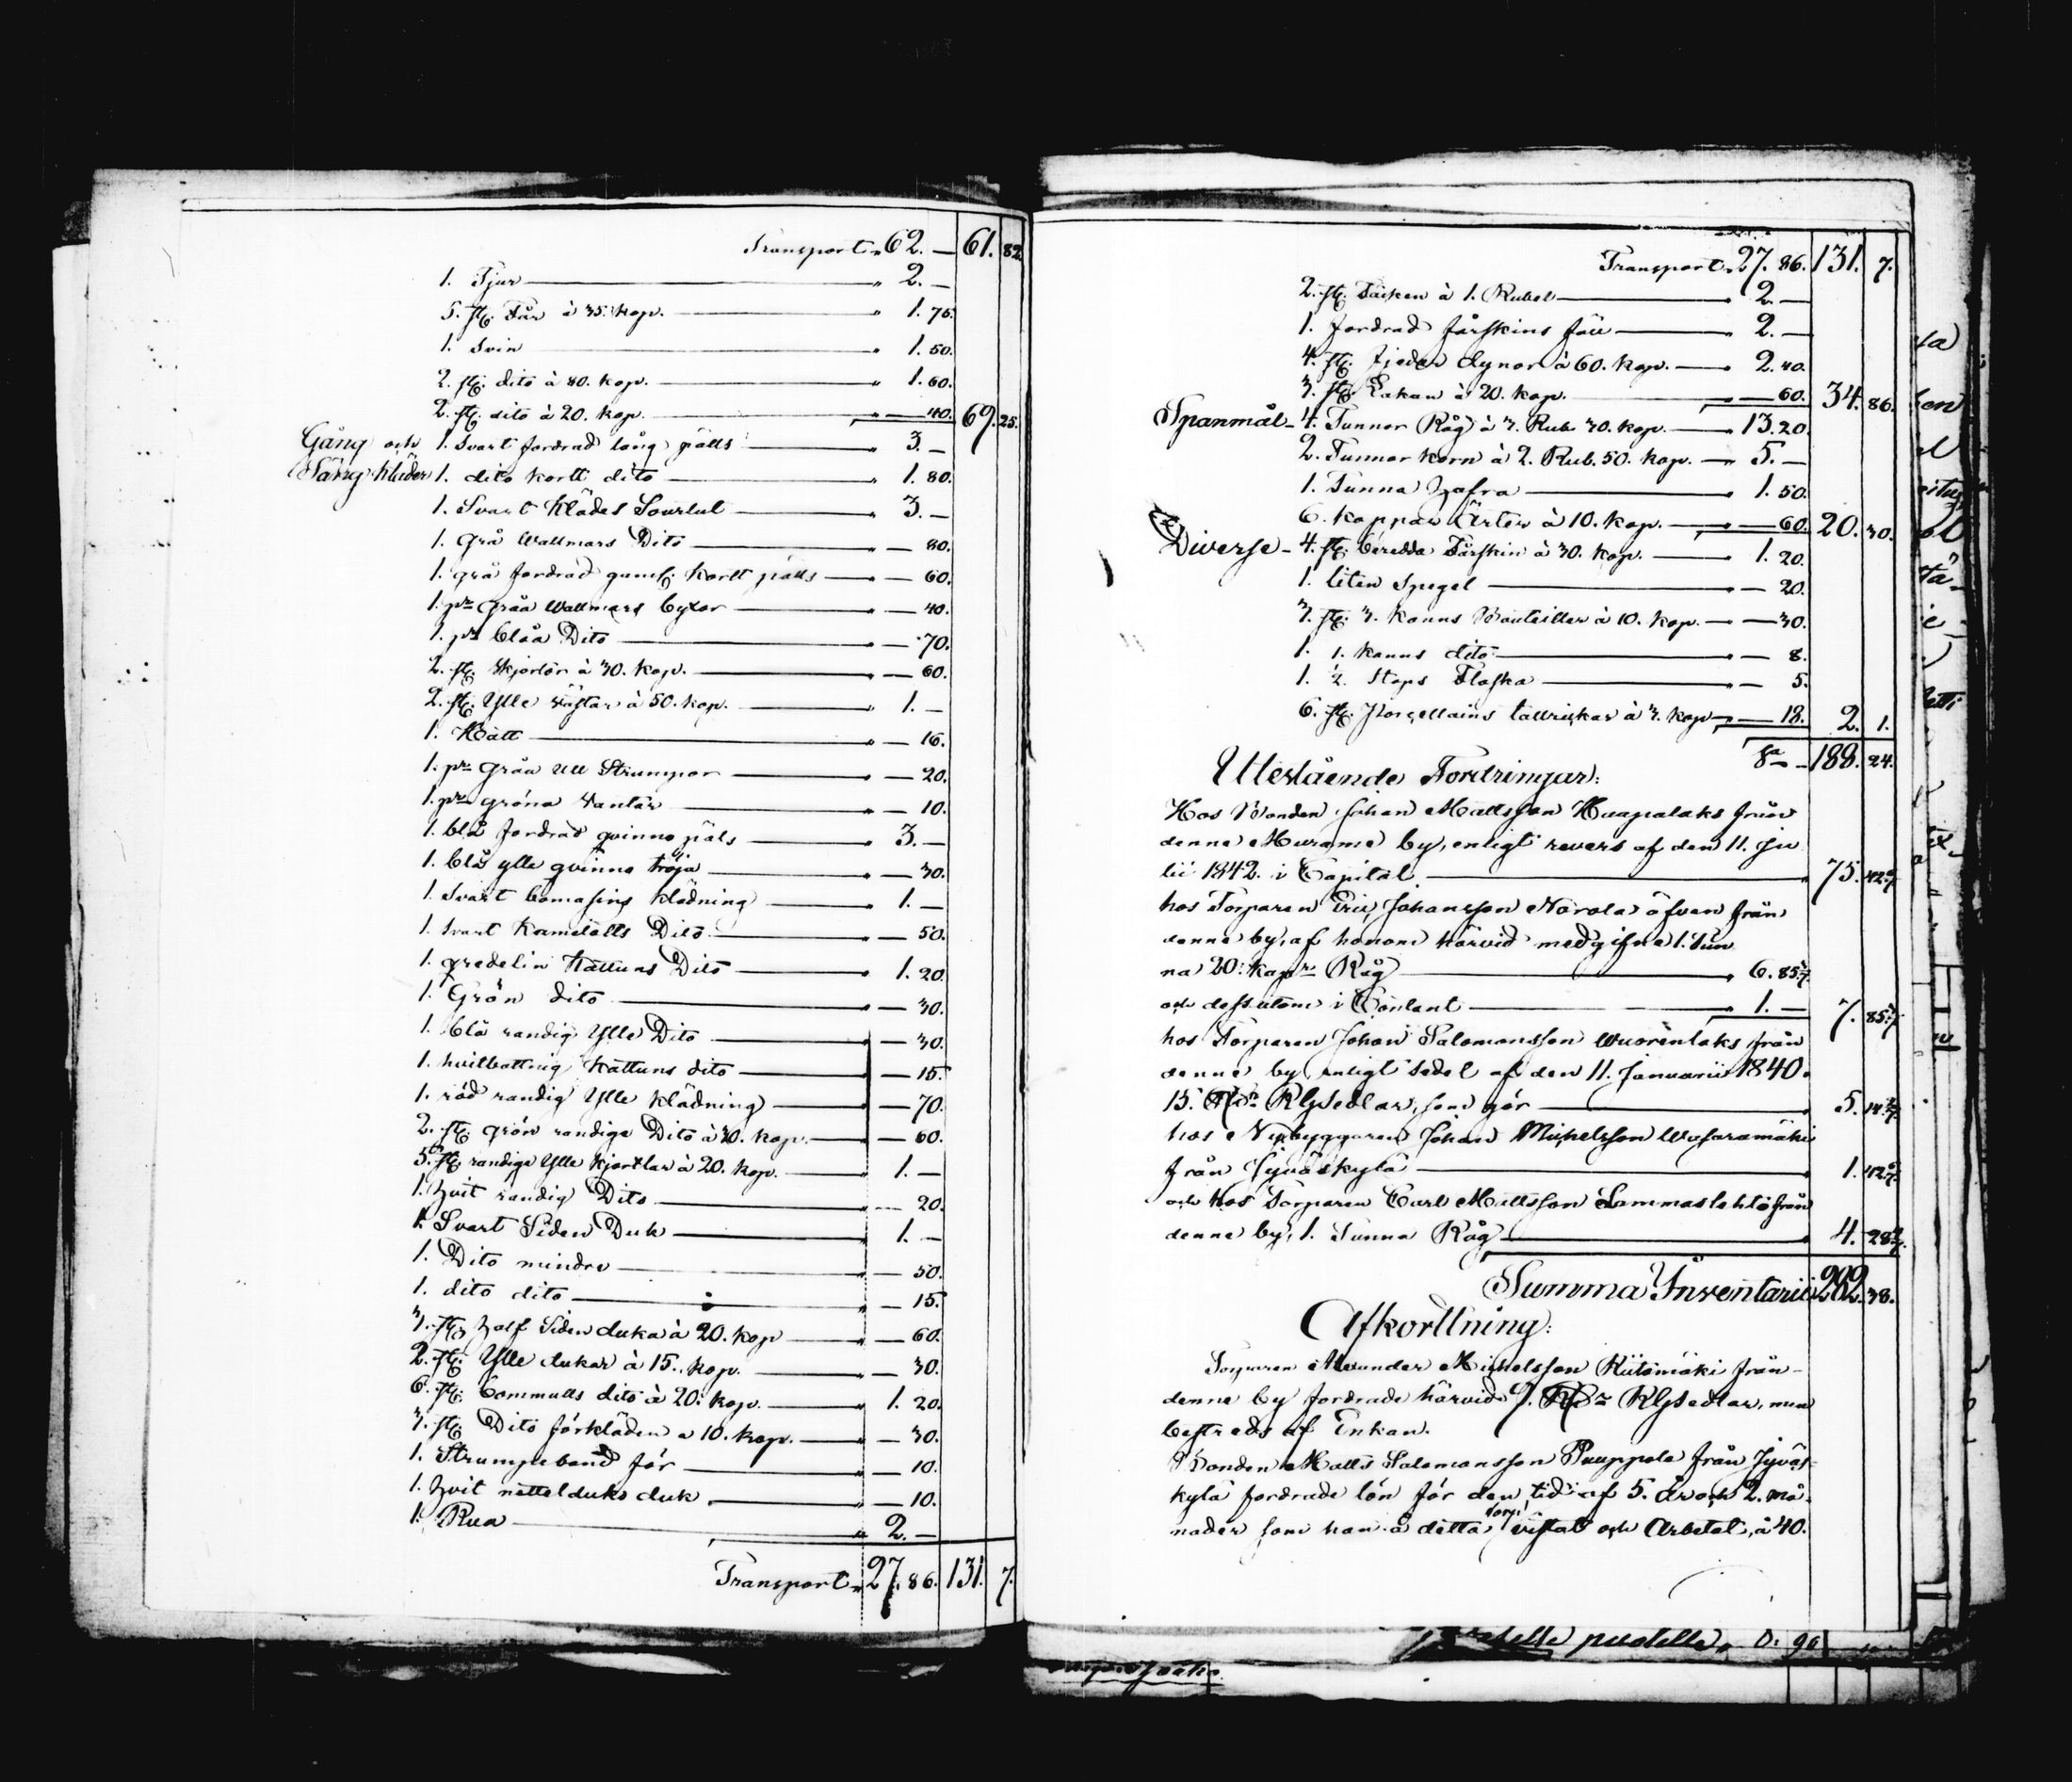 Transport „ 62. — 61. 82.
1. Tjur „ 2. —
5. st. Får à 35. kop. „ 1. 75.
1. Svin „ 1. 50.
2. st. dito à 80. kop. „ 1. 60.
2. st. dito à 20. kop. „ — 40. 69. 25.
Gång och 1. Svart fordrad lång pälts „ 3. —
Säng kläder 1. dito kortt dito „ 1. 80.
1. Svart Klädes Sourtut „ 3. —
1. Grå Wallmars Dito „ — 80.
1. grå fordrad gaml. kortt pälts „ — 60.
1. pr gråa Wallmars byxor „ — 40.
1. pr blåa Dito „ — 70.
2. st. Skjortor à 30. kop. „ — 60.
2. st. Ylle Västar à 50. kop. „ 1. —
1. Hatt „ — 16.
1. pr gråa Ull Strumpor „ — 20.
1. pr gröna Vantar „ — 10.
1. blå fordrad qvinno päls „ 3. —
1. blå ylle qvinno tröja „ — 30.
1. Svart bomasins klädning „ 1. —
1. Svart Kamelotts Dito „ — 50.
1. gredelin Kattuns Dito „ 1. 20.
1. Grön dito „ — 30.
1. blå randig Ylle Dito „ — 30.
1. hvitbottnig Kattuns dito „ — 15.
1. röd randig Ylle klädning „ — 70.
2. st. grön randiga Dito à 30. kop. „ — 60.
5. st. randiga Ylle kjortlar à 20. kop. „ 1. —
1. hvit randig Dito „ — 20.
1. Svart Siden Duk „ 1. —
1. Dito mindre „ — 50.
1. dito dito „ — 15.
3. st. half Siden dukar à 20. kop „ — 60.
2. st. Ylle dukar à 15. kop. „ — 30.
6. st. bommulls dito à 20. kop. „ 1. 20.
3. st. Dito förkläden a 10. kop. „ — 30.
1. Strumpeband för „ — 10.
1. hvit nettelduks duk „ — 10.
1. Rua „ 2. —
Transport „ 27. 86. 131. 7.
Transport „ 27. 86. 131. 7.
2. st. Täcken à 1. Rubel „ 2. —
1. fordrad fårskins fäll „ 2. —
4. st. fjeder dynor à 60. kop. „ 2. 40.
3. st. Lakan à 20. kop. „ — 60. 34. 86.
Spanmål 4. Tunnor Råg à 3. Rub. 30. kop. „ 13. 20.
2. Tunnor korn à 2. Rub. 50. kop. „ 5. —
1. Tunna hafra „ 1. 50.
6. kappar Ärter à 10. kop. „ — 60. 20. 30.
Diverse 4. st. beredda Fårskin à 30. kop. „ 1. 20.
1. liten Spegel „ — 20.
3. st. 3. kanns Bouteiller à 10. kop. „ — 30.
1. 1. kanns dito „ — 8.
1. ½. Stops Flaska „ — 5.
6. st. Porcellains tallrickar à 3. kop „ — 18. 2. 1.
Sa 188. 24.
Utestående Fordringar:
Hos Bonden Johan Mattsson Haapalaks från
denne Murame by, enligt revers af den 11. Ju
lii 1842. i Capital 75. 42 6/7
hos Torparen Eric Johansson Norola äfven från
denne by, af honom härvid medgifne 1. Tun
na 20. kap:r Råg „ 6. 85 5/7.
och dessutom i Contant „ 1. — 7. 85 5/7
hos Torparen Johan Salomonsson Wuorenlaks från
denne by enligt Sedel af den 11. Januarii 1840.
15. Rdr RGsedlar, som gör 5. 14 2/7
hos Nybyggaren Johan Michelsson
från Jyväskylä 1. 42 6/7
och hos Torparen Carl Mattsson Lammaslehto från
denne by, 1. Tunna Råg 4. 28 4/7.
Summa Inventarii 282. 38.
Afkorttning:
Torparen Alexander Michelsson Riitomäki från
denne by fordrade härvid 9. Rdr RGsedlar, men
bestreds af Enkan.
Bonden Matts Salomonsson Puuppola från Jyväs
kylä fordrade lön för den tid af 5. år och 2. må
nader som han å detta torp vistats och Arbetat, à 40.